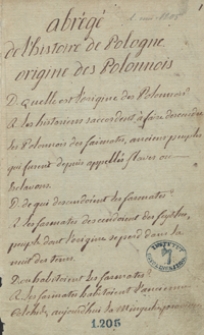 abrégé
de l'histoire de Pologne
origine des Polonnois
D. quelle est l'origine des Polonnois
R. les historiens s'accordent a faire descendre
les Polonnois des sarmates, anciens peuples
qui furent depuis appellés slaves ou
D. de qui descendoient les sarmates?
R. les sarmates descendoient des scythes,
peuple dont l'origine se perd dans la
nuit des tems.
D. ou habitoient les sarmates?
R. les sarmates habitoient
aujourdhui la
1205